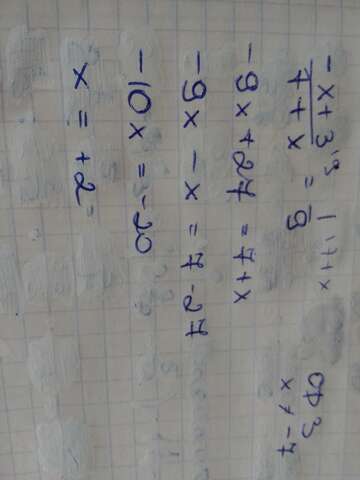 -x+3 / 7+x \9 = 1/9 \7+x
ОДЗ
x ≠ -7
-9x+27 = 7+x
-9x - x = 7-27
-10x = -20
x = +2